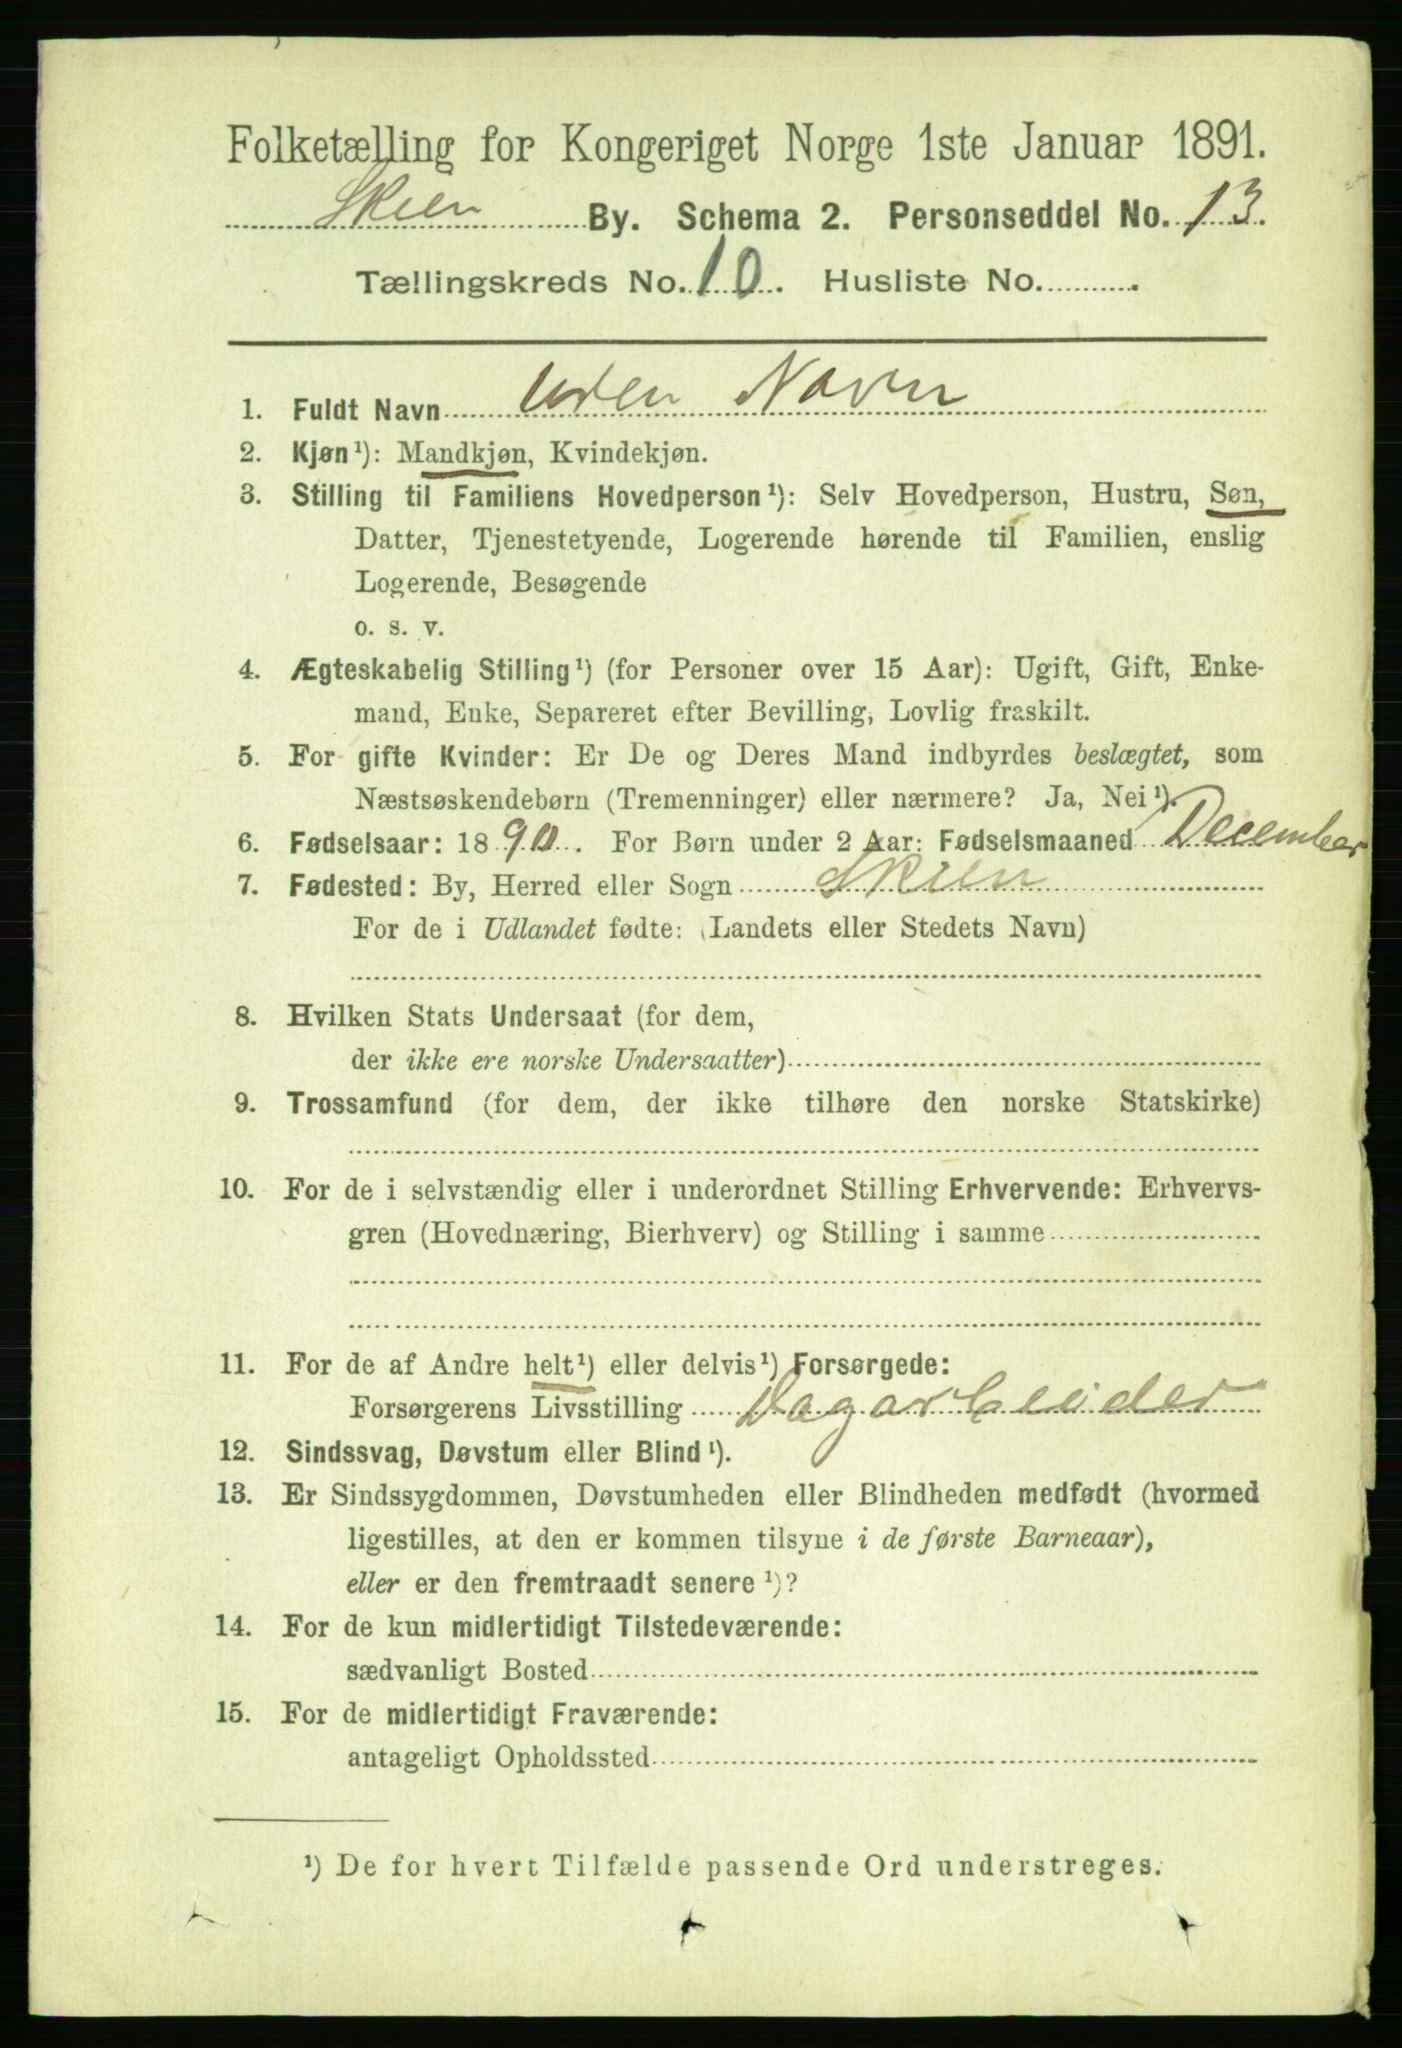 Folketælling for Kongeriget Norge 1ste Januar 1891.
Skien By. Schema 2. Personseddel No. 13.
Tællingskreds No. 10. Husliste No. .
1. Fuldt Navn Uden Navn
2. Kjøn¹): Mandkjøn, Kvindekjøn.
3. Stilling til Familiens Hovedperson¹): Selv Hovedperson, Hustru, Søn,
Datter, Tjenestetyende, Logerende hørende til Familien, enslig
Logerende, Besøgende
o. s. v.
4. Ægteskabelig Stilling¹) (for Personer over 15 Aar): Ugift, Gift, Enke-
mand, Enke, Separeret efter Bevilling, Lovlig fraskilt.
5. For gifte Kvinder: Er De og Deres Mand indbyrdes beslægtet, som
Næstsøskendebørn (Tremenninger) eller nærmere? Ja, Nei¹).
6. Fødselsaar: 1890. For Børn under 2 Aar: Fødselsmaaned December
7. Fødested: By, Herred eller Sogn Skien
For de i Udlandet fødte: (Landets eller Stedets Navn)
8. Hvilken Stats Undersaat (for dem,
der ikke ere norske Undersaatter)
9. Trossamfund (for dem, der ikke tilhøre den norske Statskirke)
10. For de i selvstændig eller i underordnet Stilling Erhvervende: Erhvervs-
gren (Hovednæring, Bierhverv) og Stilling i samme
11. For de af Andre helt¹) eller delvis¹) Forsørgede:
Forsørgerens Livsstilling Dagarbeider
12. Sindssvag, Døvstum eller Blind¹).
13. Er Sindssygdommen, Døvstumheden eller Blindheden medfødt (hvormed
ligestilles, at den er kommen tilsyne i de første Barneaar),
eller er den fremtraadt senere¹)?
14. For de kun midlertidigt Tilstedeværende:
sædvanligt Bosted
15. For de midlertidigt Fraværende:
antageligt Opholdssted
¹) De for hvert Tilfælde passende Ord understreges.